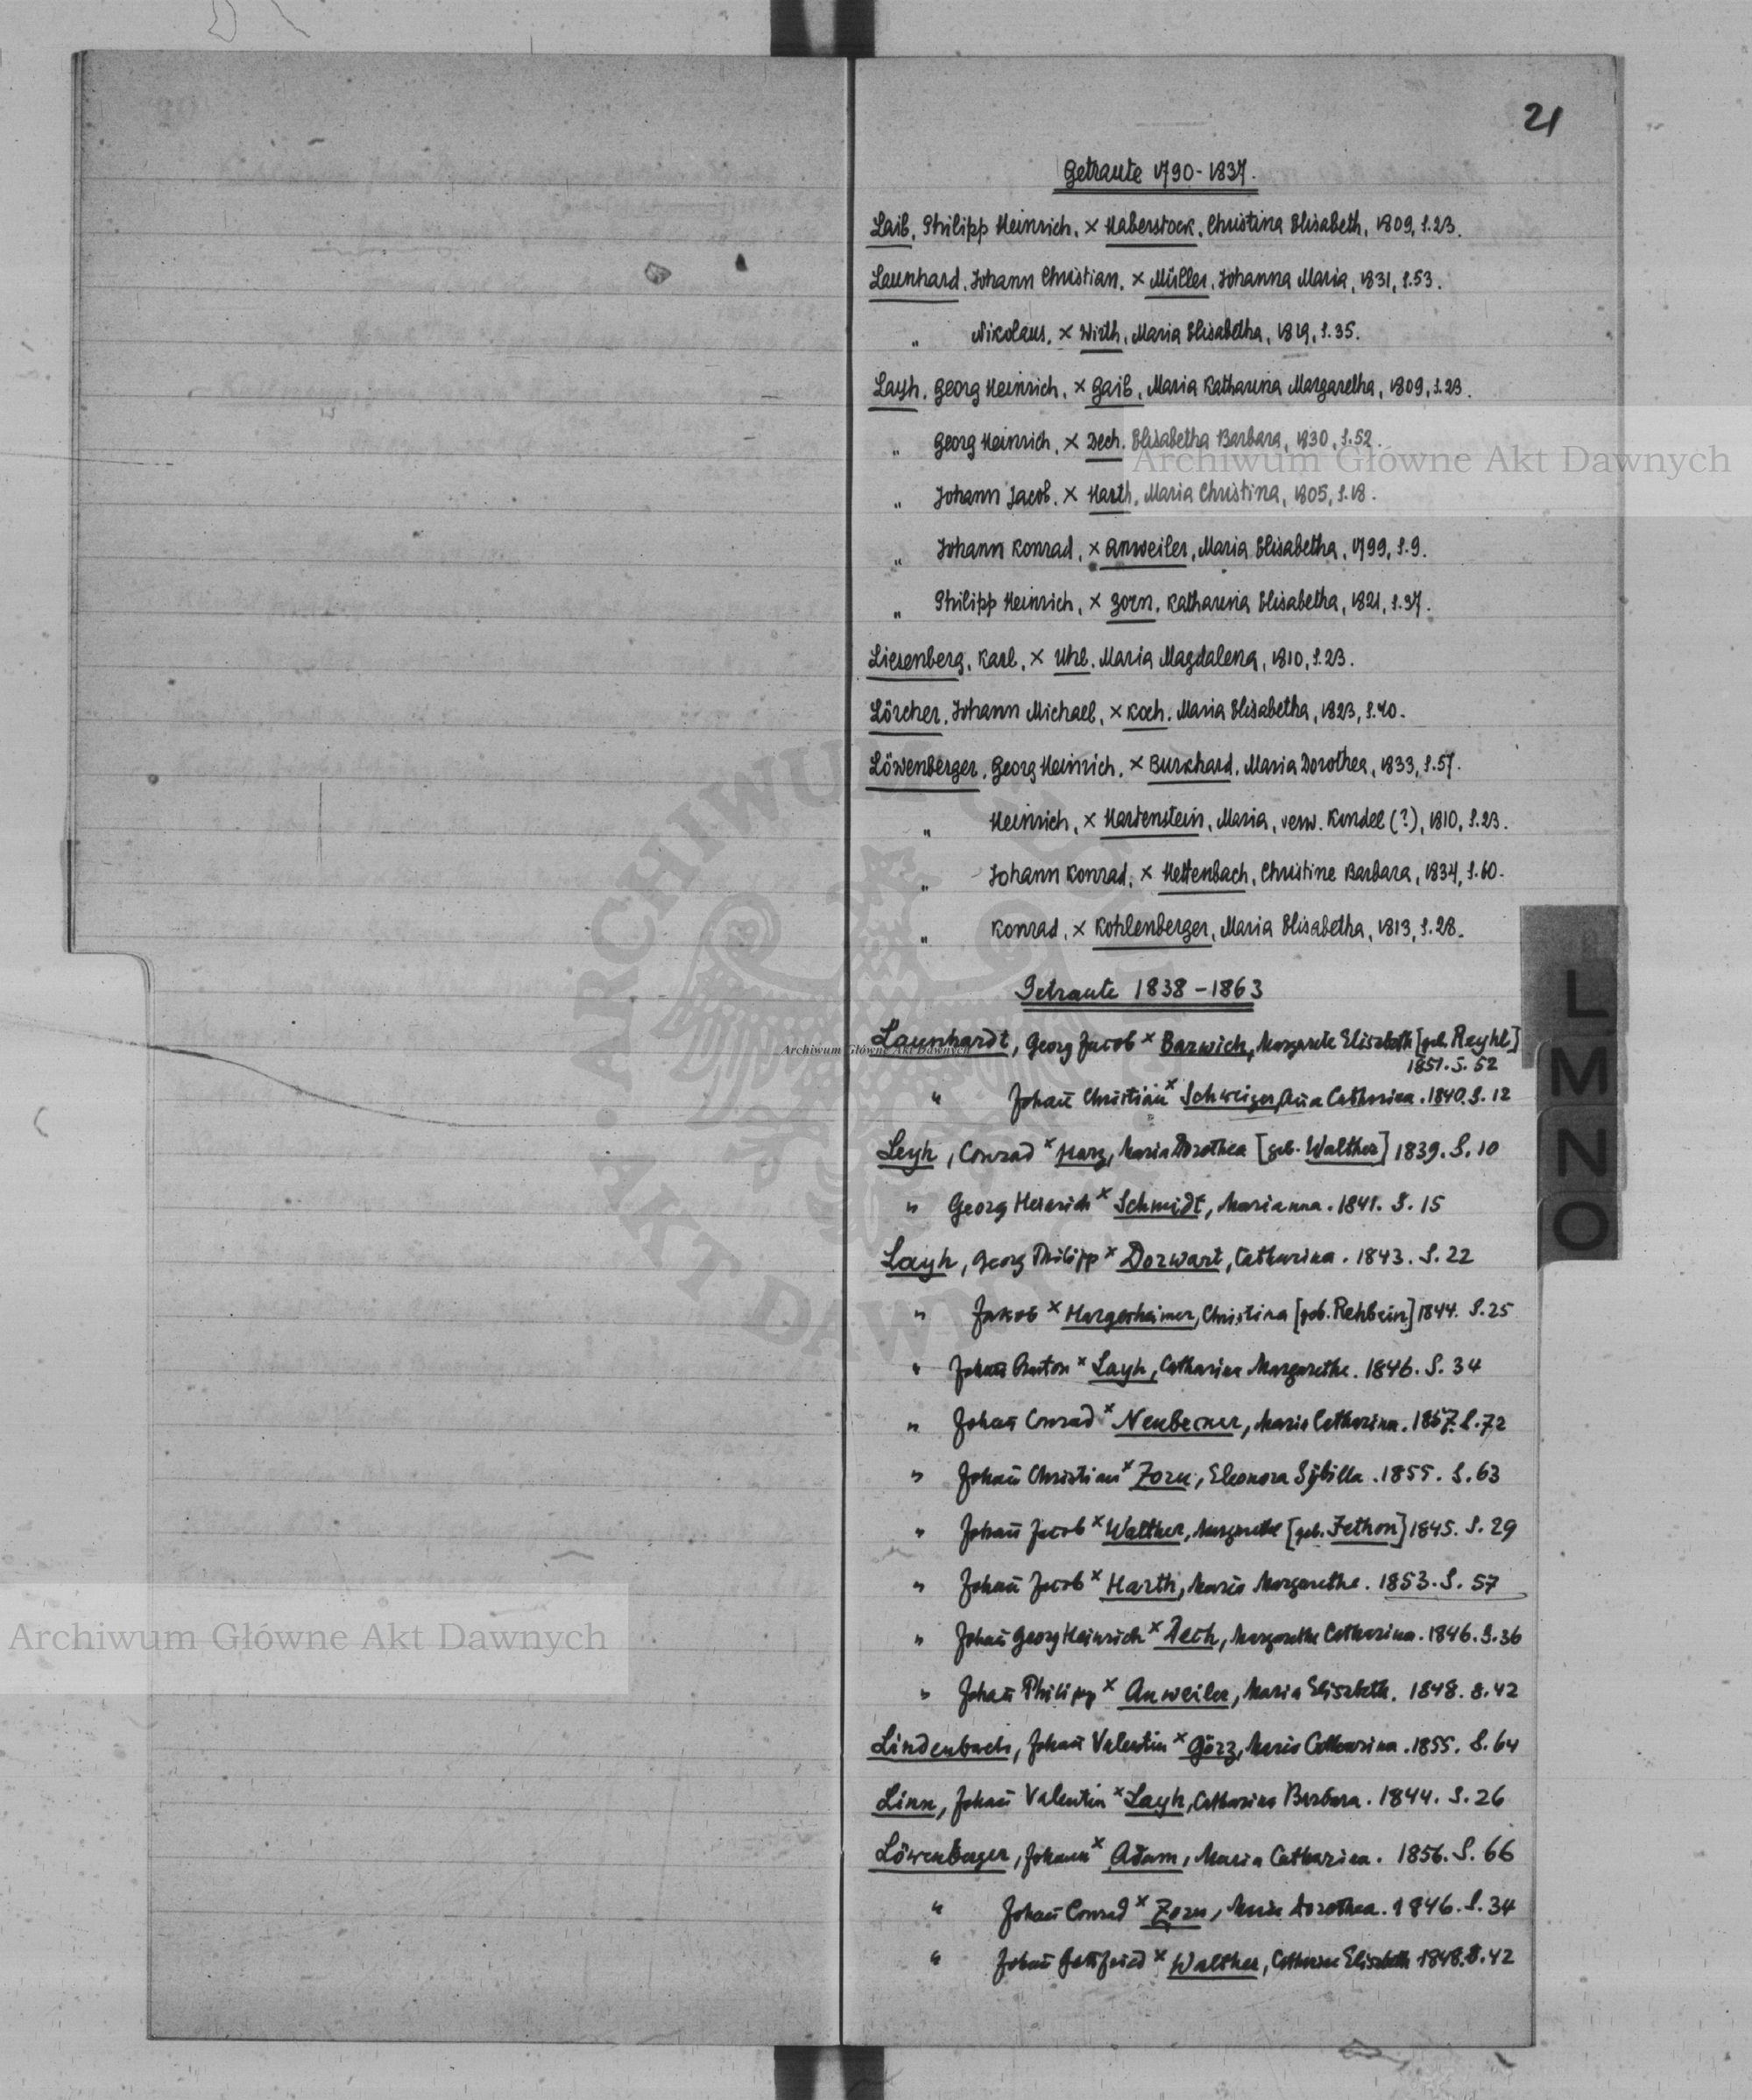 21
Getraute 1790-1837.
Laib, Philipp Heinrich, × Haberstock, Christina Elisabeth, 1809, S.23.
Launhard, Johann Christian, × Müller, Johanna Maria, 1831, S.53.
" Nikolaus, × Wirth, Maria Elisabetha, 1819, S.35.
Layh, Georg Heinrich, × Gaib, Maria Katharina Margaretha, 1809, S.23.
" Georg Heinrich, × Dech, Elisabetha Barbara, 1830, S.52.
Archiwum Główne Akt Dawnych
" Johann Jacob, × Harth, Maria Christina, 1805, S.18.
" Johann Konrad, × Anweiler, Maria Elisabetha, 1799, S.9.
" Philipp Heinrich, × Zorn, Katharina Elisabetha, 1821, S.37.
Liesenberg, Karl, × Uhl, Maria Magdalena, 1810, S.23.
Lörcher, Johann Michael, × Koch, Maria Elisabetha, 1823, S.40.
Löwenberger, Georg Heinrich, × Burkhard, Maria Dorothea, 1833, S.57.
" Heinrich, × Hartenstein, Maria, verw. Kendel (?), 1810, S.23.
" Johann Konrad, × Hettenbach, Christine Barbara, 1834, S.60.
" Konrad, × Kohlenberger, Maria Elisabetha, 1813, S.28.
Getraute 1838-1863
Launhardt, Georg Jacob × Barwich, Margarete Elisabeth [geb. Reyhl]
1851. S. 52
Archiwum Główne Akt Dawnych
" Johañ Christian × Schweizer, Aña Catharina. 1840. S. 12
Leyh, Conrad × Harz, Maria Dorothea [geb. Walther] 1839. S. 10
" Georg Heinrich × Schmidt, Marianna. 1841. S. 15
Layh, Georg Philipp × Dorwart, Catharina. 1843. S. 22
" Jakob × Hargesheimer, Christina [geb. Rehbein] 1844. S. 25
" Johañ Anton × Layh, Catharina Margarethe. 1846. S. 34
" Johañ Conrad × Neubecker, Maria Catharina. 1857. S. 72
" Johañ Christian × Zorn, Eleonora Sybilla. 1855. S. 63
" Johañ Jacob × Walther, Margarethe [geb. Fethon] 1845. S. 29
" Johañ Jacob × Harth, Maria Margarethe. 1853. S. 57
" Johañ Georg Heinrich × Dech, Margarethe Catharina. 1846. S. 36
" Johañ Philipp × Anweiler, Maria Elisabeth. 1848. S. 42
Lindenbach, Johañ Valentin × Görz, Maria Catharina. 1855. S. 64
Linn, Johañ Valentin × Layh, Catharina Barbara. 1844. S. 26
Löwenberger, Johann × Adam, Maria Catharina. 1856. S. 66
" Johañ Conrad × Zorn, Maria Dorothea. 1846. S. 34
" Johañ Gottfried × Walther, Catharina Elisabeth 1848. S. 42
L
M
N
O
Archiwum Główne Akt Dawnych
ARCHIWUM GŁÓWNE AKT DAWNYCH